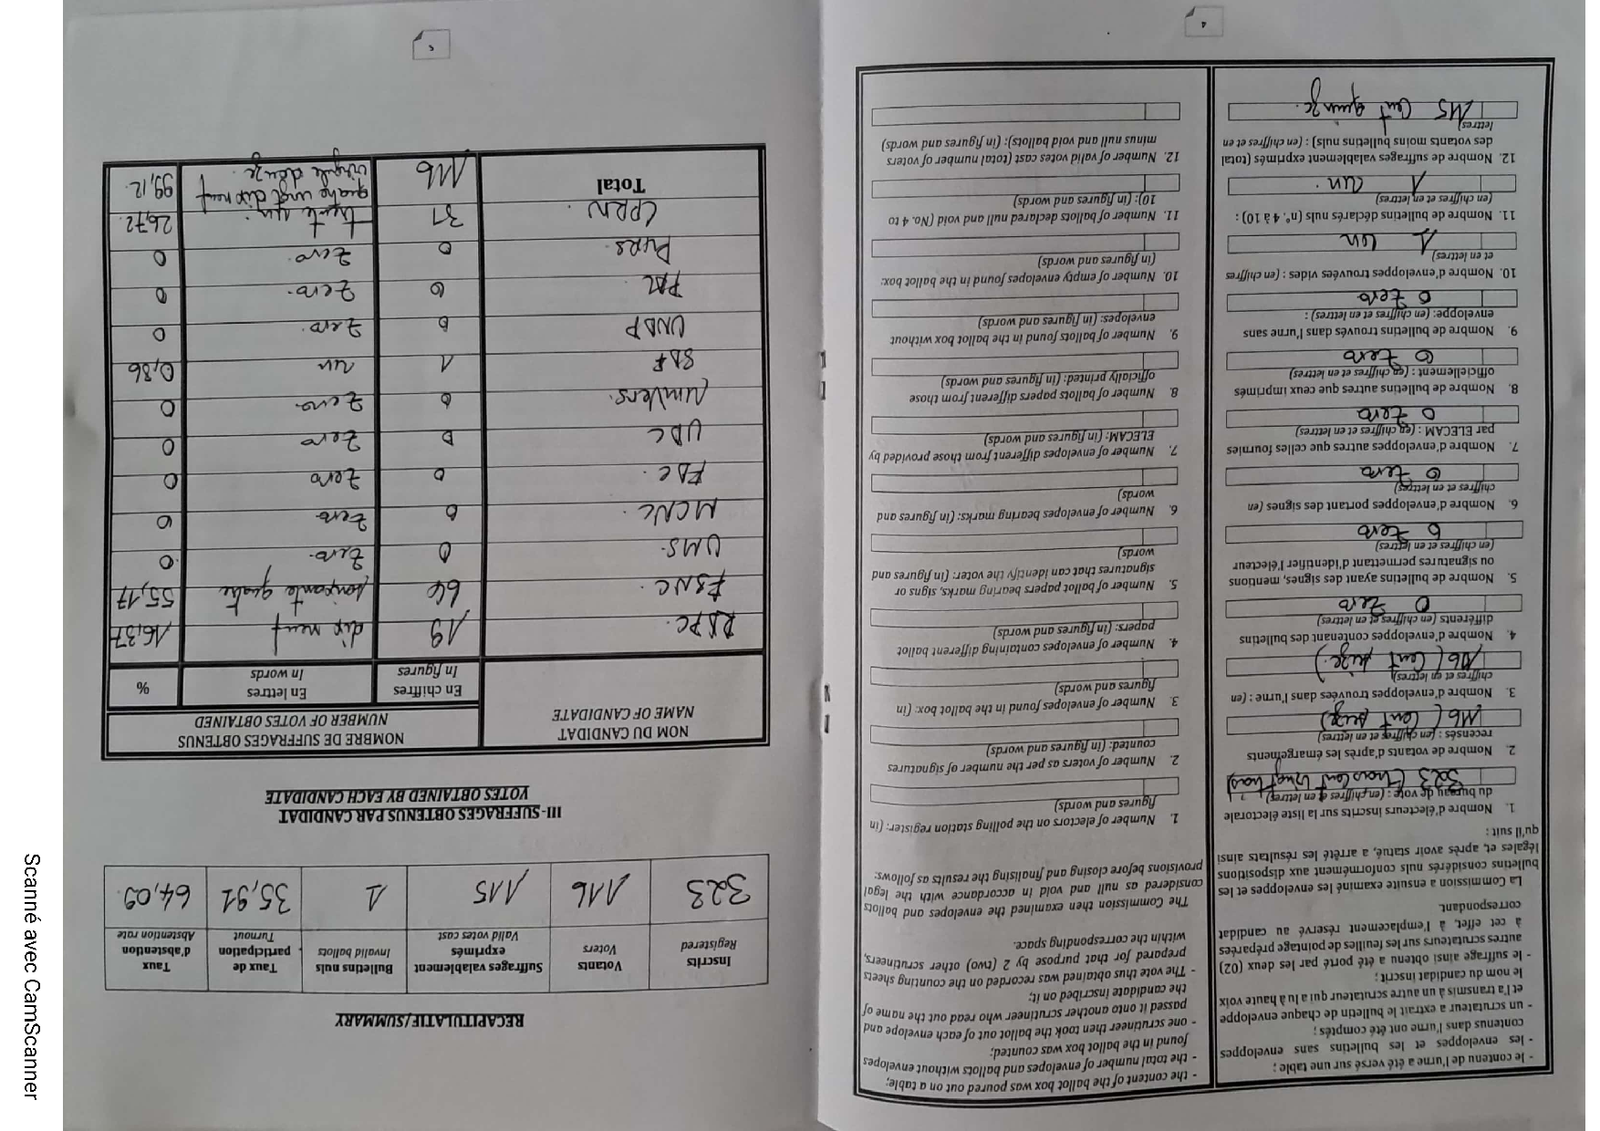 4
- le contenu de l'urne a été versé sur une table ;
- les enveloppes et les bulletins sans enveloppes
contenus dans l'urne ont été comptés ;
- un scrutateur a extrait le bulletin de chaque enveloppe
et l'a transmis à un autre scrutateur qui a lu à haute voix
le nom du candidat inscrit ;
- le suffrage ainsi obtenu a été porté par les deux (02)
autres scrutateurs sur les feuilles de pointage préparées
à cet effet, à l'emplacement réservé au candidat
correspondant.
La Commission a ensuite examiné les enveloppes et les
bulletins considérés nuls conformément aux dispositions
légales et, après avoir statué, a arrêté les résultats ainsi
qu'il suit :
1. Nombre d'électeurs inscrits sur la liste électorale
du bureau de vote : (en chiffres et en lettres)
323 (trois cent vingt trois)
2. Nombre de votants d'après les émargements
recensés : (en chiffres et en lettres)
116 (Cent seize)
3. Nombre d'enveloppes trouvées dans l'urne : (en
chiffres et en lettres)
116 (Cent seize)
4. Nombre d'enveloppes contenant des bulletins
différents (en chiffres et en lettres)
0 zero
5. Nombre de bulletins ayant des signes, mentions
ou signatures permettant d'identifier l'électeur
(en chiffres et en lettres)
0 zero
6. Nombre d'enveloppes portant des signes (en
chiffres et en lettres)
0 zero
7. Nombre d'enveloppes autres que celles fournies
par ELECAM : (en chiffres et en lettres)
0 zero
8. Nombre de bulletins autres que ceux imprimés
officiellement : (en chiffres et en lettres)
0 zero
9. Nombre de bulletins trouvés dans l'urne sans
enveloppe: (en chiffres et en lettres) :
0 zero
10. Nombre d'enveloppes trouvées vides : (en chiffres
et en lettres)
1 un
11. Nombre de bulletins déclarés nuls (n°. 4 à 10) :
(en chiffres et en lettres)
1 un
12. Nombre de suffrages valablement exprimés (total
des votants moins bulletins nuls) : (en chiffres et en
lettres)
115 Cent quinze
- the content of the ballot box was poured out on a table;
- the total number of envelopes and ballots without envelopes
found in the ballot box was counted;
- one scrutineer then took the ballot out of each envelope and
passed it onto another scrutineer who read out the name of
the candidate inscribed on it;
- The vote thus obtained was recorded on the counting sheets
prepared for that purpose by 2 (two) other scrutineers,
within the corresponding space.
The Commission then examined the envelopes and ballots
considered as null and void in accordance with the legal
provisions before closing and finalising the results as follows:
1. Number of electors on the polling station register: (in
figures and words)
2. Number of voters as per the number of signatures
counted: (in figures and words)
3. Number of envelopes found in the ballot box: (in
figures and words)
4. Number of envelopes containing different ballot
papers: (in figures and words)
5. Number of ballot papers bearing marks, signs or
signatures that can identify the voter: (in figures and
words)
6. Number of envelopes bearing marks: (in figures and
words)
7. Number of envelopes different from those provided by
ELECAM: (in figures and words)
8. Number of ballots papers different from those
officially printed: (in figures and words)
9. Number of ballots found in the ballot box without
envelopes: (in figures and words)
10. Number of empty envelopes found in the ballot box:
(in figures and words)
11. Number of ballots declared null and void (No. 4 to
10): (in figures and words)
12. Number of valid votes cast (total number of voters
minus null and void ballots): (in figures and words)
5
RECAPITULATIF/SUMMARY
Inscrits Registered | Votants Voters | Suffrages valablement exprimés Valid votes cast | Bulletins nuls Invalid ballots | Taux de participation Turnout | Taux d'abstention Abstention rate
323 | 116 | 115 | 1 | 35,91 | 64,09
III- SUFFRAGES OBTENUS PAR CANDIDAT
VOTES OBTAINED BY EACH CANDIDATE
NOM DU CANDIDAT NAME OF CANDIDATE | NOMBRE DE SUFFRAGES OBTENUS NUMBER OF VOTES OBTAINED
En chiffres In figures | En lettres In words | %
RDPC. | 19 | dix neuf | 16,37
FSNC. | 64 | soixante quatre | 55,17
UMS. | 0 | Zero. | 0
MCNC. | 0 | Zero | 0
FDC. | 0 | Zero | 0
UDC | 0 | Zero | 0
Univers. | 0 | Zero. | 0
SDF | 1 | un | 0,86
UNDP | 0 | Zero. | 0
PAL | 0 | Zero. | 0
PURS. | 0 | Zero. | 0
CPRN. | 31 | trente un | 26,72
Total | 116 | quatre vingt dix neuf virgule douze. | 99,12.
Scanné avec CamScanner